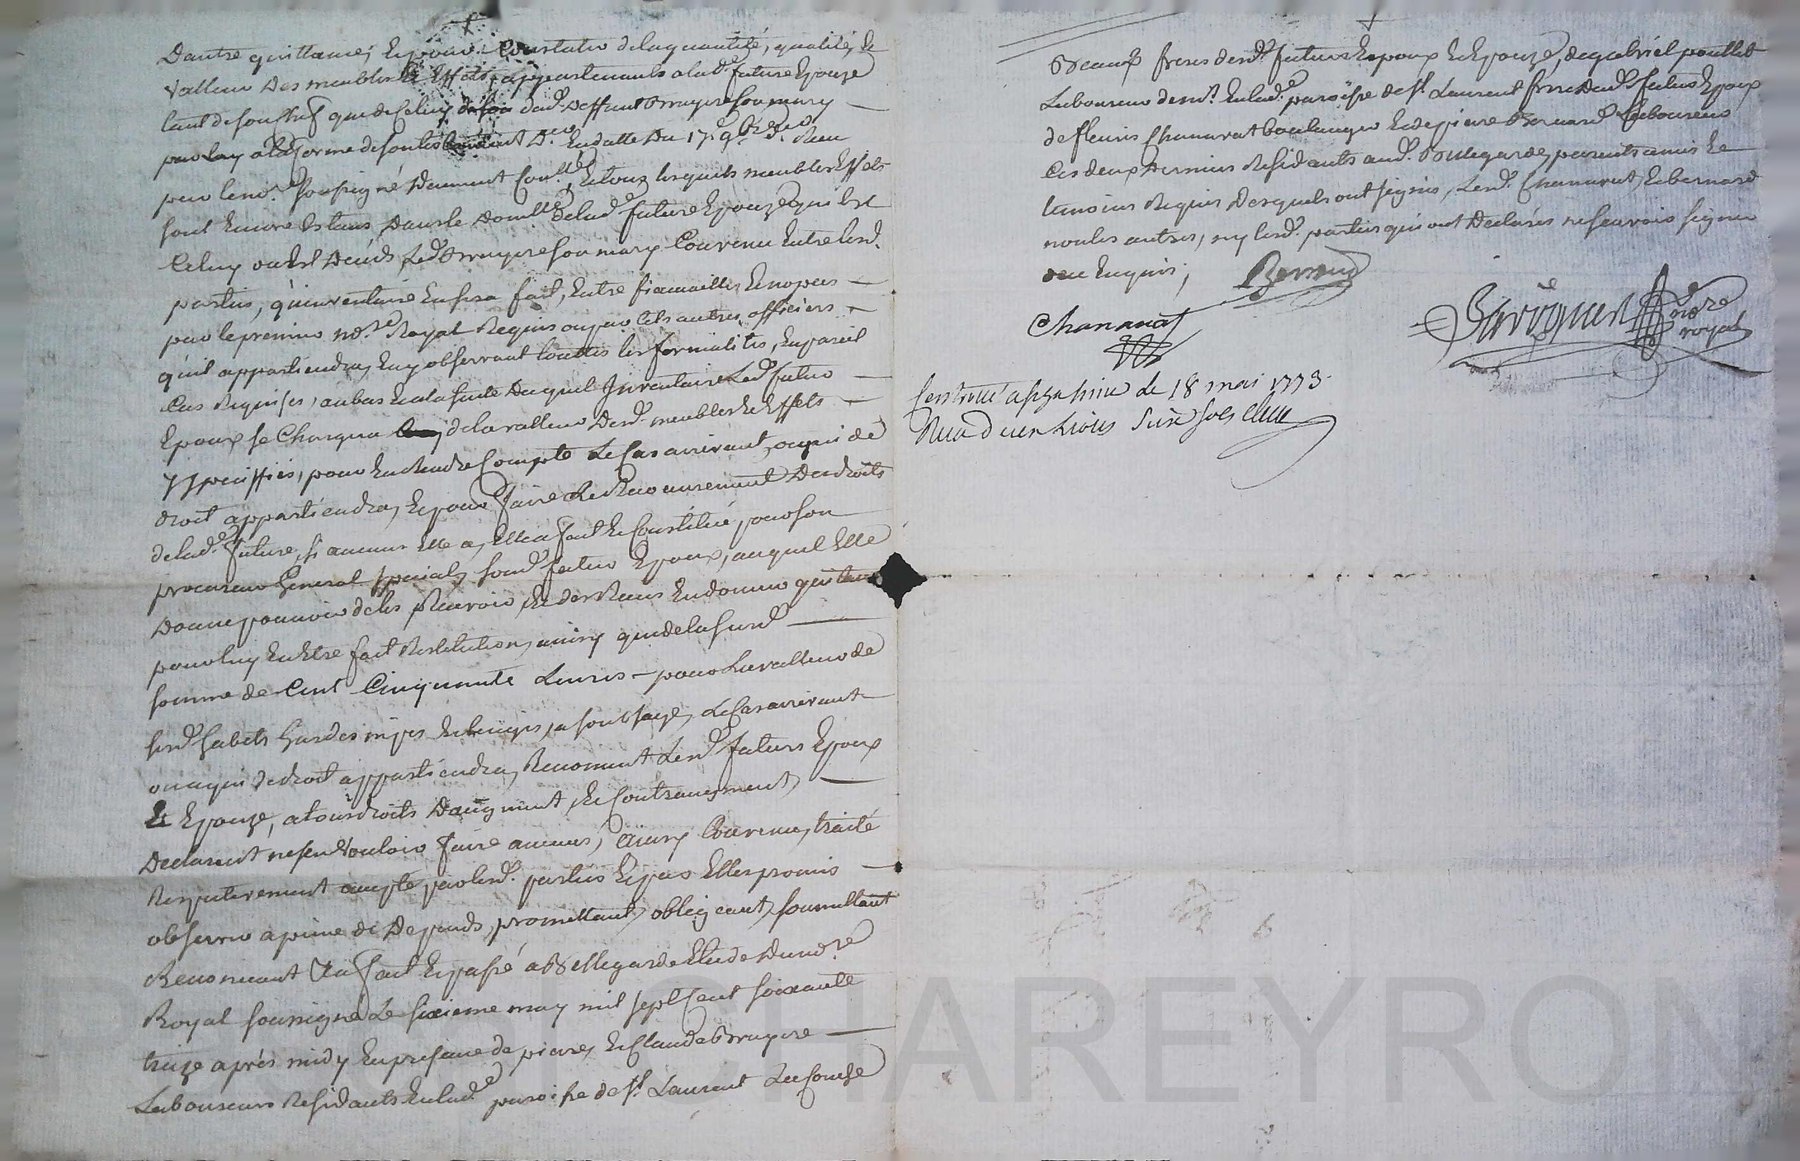 Dautre quittance, Et pour Constater de la quantité, qualité, Et
valleur Des meubles Et Effets appartenants a lade future Epouze
tant de son chef que de Celuy dud. Deffunt Bruyere son mary
par luy a la forme de son testament Dr. En datte Du 17e 9bre Dr. Reçu
par le nore soussigné Dument Conllé, Et tous lesquels meubles Effets
sont Encore Estans Dans le Domlle de lade future Epouze qui Est
Celuy ou Est Decedé Led. Bruyere son mary Convenu Entre lesd.
parties, qu'inventaire En sera fait, Entre fiancailles Et nopces
par le premier nore Royal Requis ou par tels autres officiers
qu'il appartiendra, En y observant touttes les formalités, En pareil
Cas Requises, au bas Et a la suite Duquel Inventaire Led. futur
Epoux se Chargera de la valleur Desd. meubles Et Effets
y speciffiés, pour En Rendre Compte Le Cas arrivant, ou qui de
droit appartiendra, Et pour faire Le Recouvrement Des droits
de lade. future, si aucuns Elle a, Elle a fait Et Constitué pour son
procureur General special, sond. futur Epoux, auquel Elle
Donne pouvoir de les Recevoir, Et des Recus En donner quittance
pour luy En Etre fait Restitution, ainsy que de la susd.
somme de Cent Cinquante Livres - pour La valleur de
sesd. habits hardes nipes Et linges, a son usage, Le Cas arrivant
ou a qui de droit appartiendra, Renoncent Lesd. futurs Epoux
Et Epouze, a tous droits Daugment, Et Contraugment,
Declarant ne s'en Vouloir faire aucuns, Ainsy Convenu, traité
Respectivement accepté par lesd. parties Et par Elles promis
observer a peine de Depends, promettant, obligeant, soumettant
Renoncant &a fait Et passé a Bellegarde Etude Dud. nore
Royal soussigné Le sixieme may mil sept Cent soixante
treize après midy En presence de pierre, Et Claude Bruyere
Laboureurs Residants En lade. paroisse de St. Laurent La Conche
Beaux freres desd. futurs Epoux Et Epouze, de gabriel poullet
Laboureur dem.t En lade. paroisse de St. Laurent frere Dud. futur Epoux
de fleuris Chanavat boulanger Et de pierre Bernard Laboureurs
Ces deux derniers Residants aud. Bellegarde, parents amis Et
temoins Requis Desquels ont signés, Lesd. Chanavat, Et bernard
non les autres, ny lesd. parties qui ont Declarés ne scavoir signer
de ce Enquis,
Bernard
Chanavat
nore
royal
Controllé a le 18 mai 1773.
Reçu